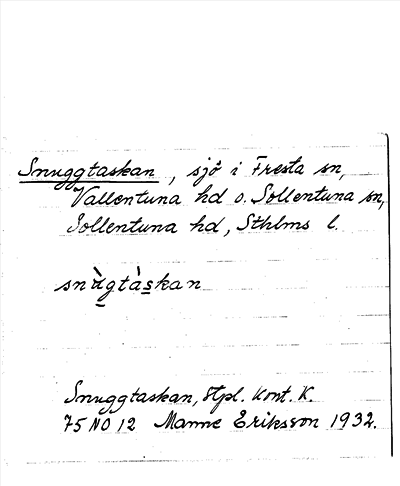 Snuggtaskan, sjö i Fresta sn,
Vallentuna hd o. Sollentuna sn,
Sollentuna hd, Sthlms l.
snùgtàskan
Snuggtaskan, Htpl. kont. K.
75 NO 12 Manne Eriksson 1932.